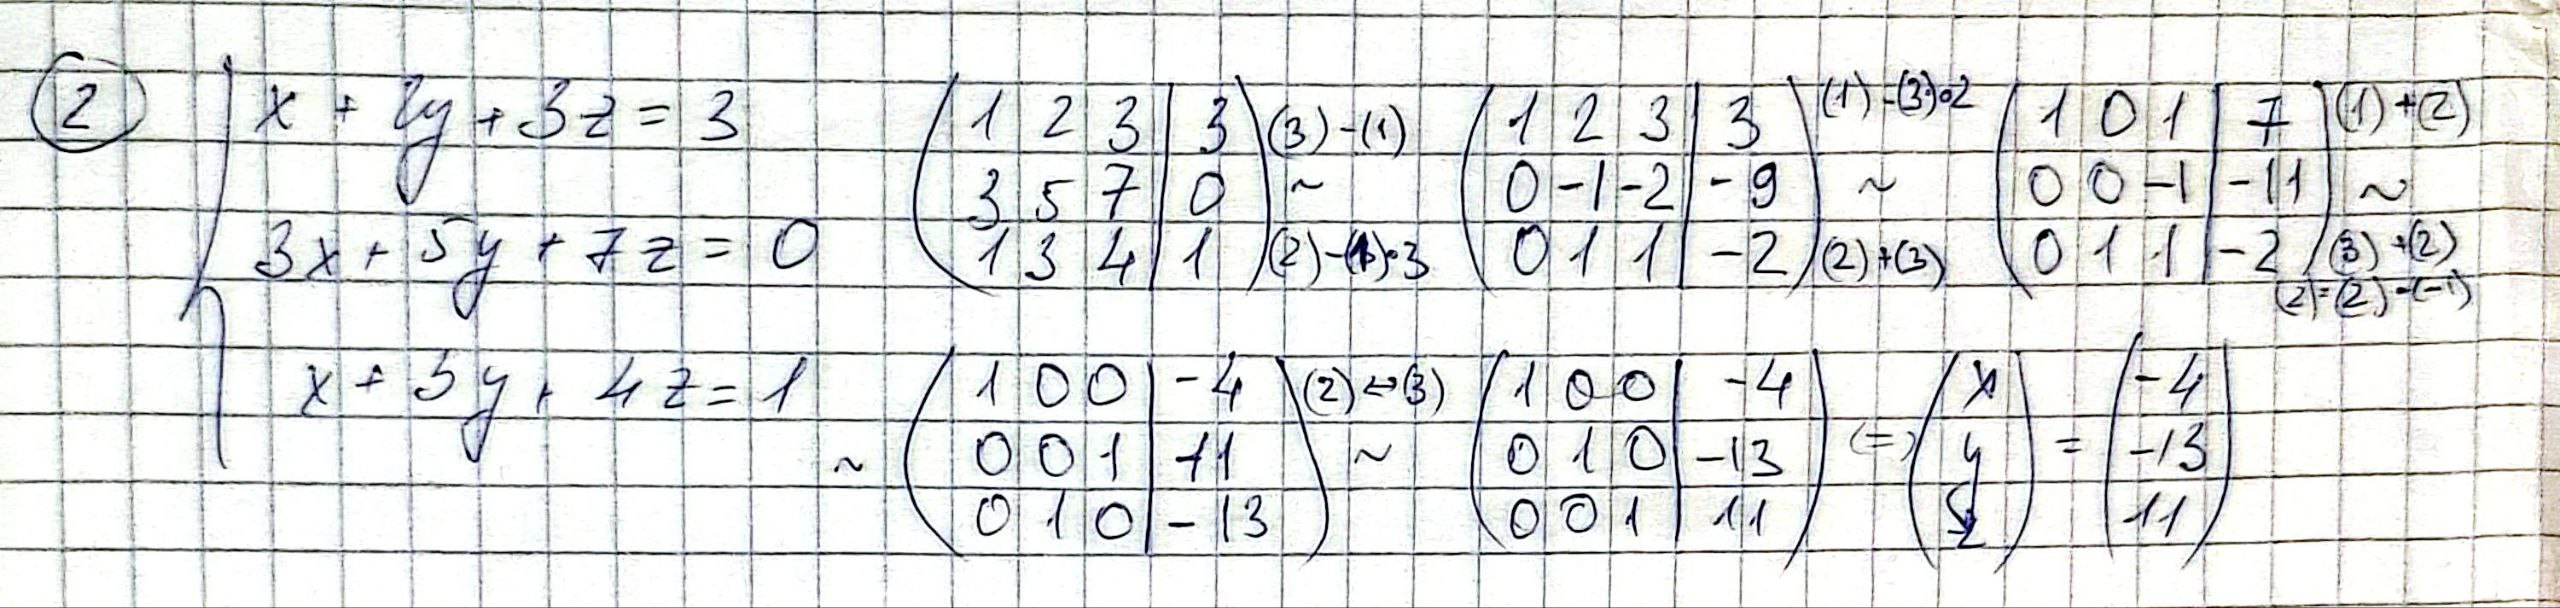 2
x + 2y + 3z = 3
3x + 5y + 7z = 0
x + 3y + 4z = 1
( 1 2 3 | 3 ) (3) - (1)
( 3 5 7 | 0 ) ~
( 1 3 4 | 1 ) (2) - (1)·3
( 1 2 3 | 3 ) (1) - (3)·2
( 0 -1 -2 | -9 ) ~
( 0 1 1 | -2 ) (2) + (3)
( 1 0 1 | 7 ) (1) + (2)
( 0 0 -1 | -11 ) ~
( 0 1 1 | -2 ) (3) + (2)
(2) = (2) · (-1)
( 1 0 0 | -4 ) (2) ↔ (3)
~ ( 0 0 1 | 11 ) ~
( 0 1 0 | -13 )
( 1 0 0 | -4 )
( 0 1 0 | -13 ) (=)
( 0 0 1 | 11 )
( x ) ( -4 )
( y ) = ( -13 )
( z ) ( 11 )